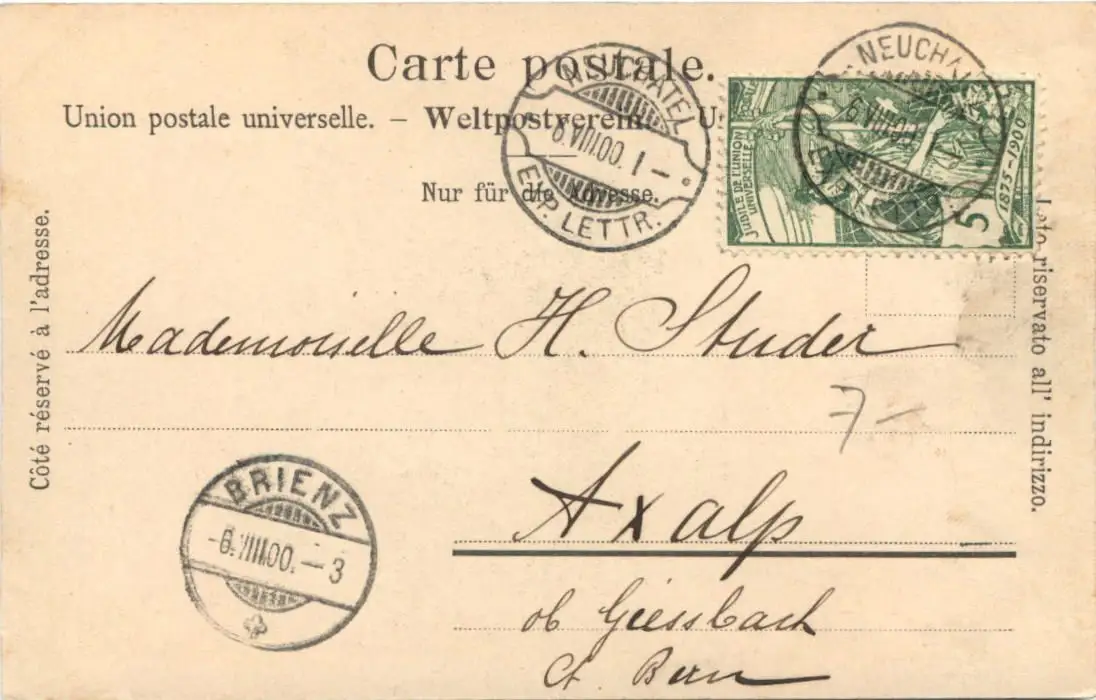 Carte postale.
Union postale universelle. – Weltpostverein. U
Nur für die Adresse.
Côté réservé à l'adresse.
Lato riservato all' indirizzo.
NEUCHATEL
6.VIII.00. I –
EXP. LETTR.
NEUCHATEL
6.VIII.00. I
EXP. LETTR.
JUBILÉ DE L'UNION
POSTALE
UNIVERSELLE
1875–1900
5
Mademoiselle H. Studer
7–
Axalp
ob Giessbach
Ct. Bern
BRIENZ
-6.VIII.00. – 3